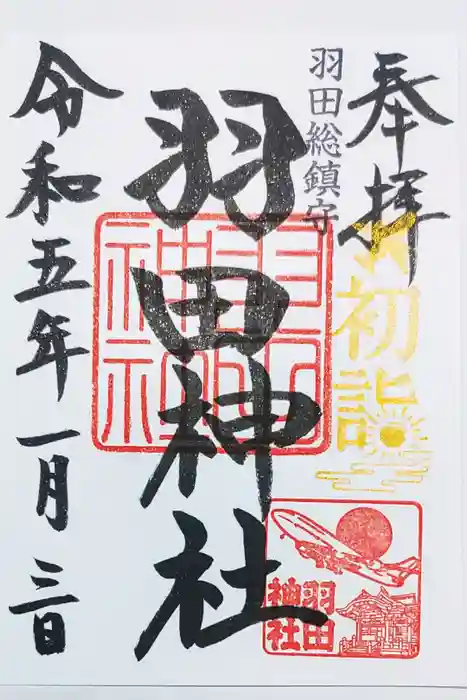 奉拝
初詣
羽田総鎮守
羽田神社
羽田神社
羽田神社
令和五年一月三日